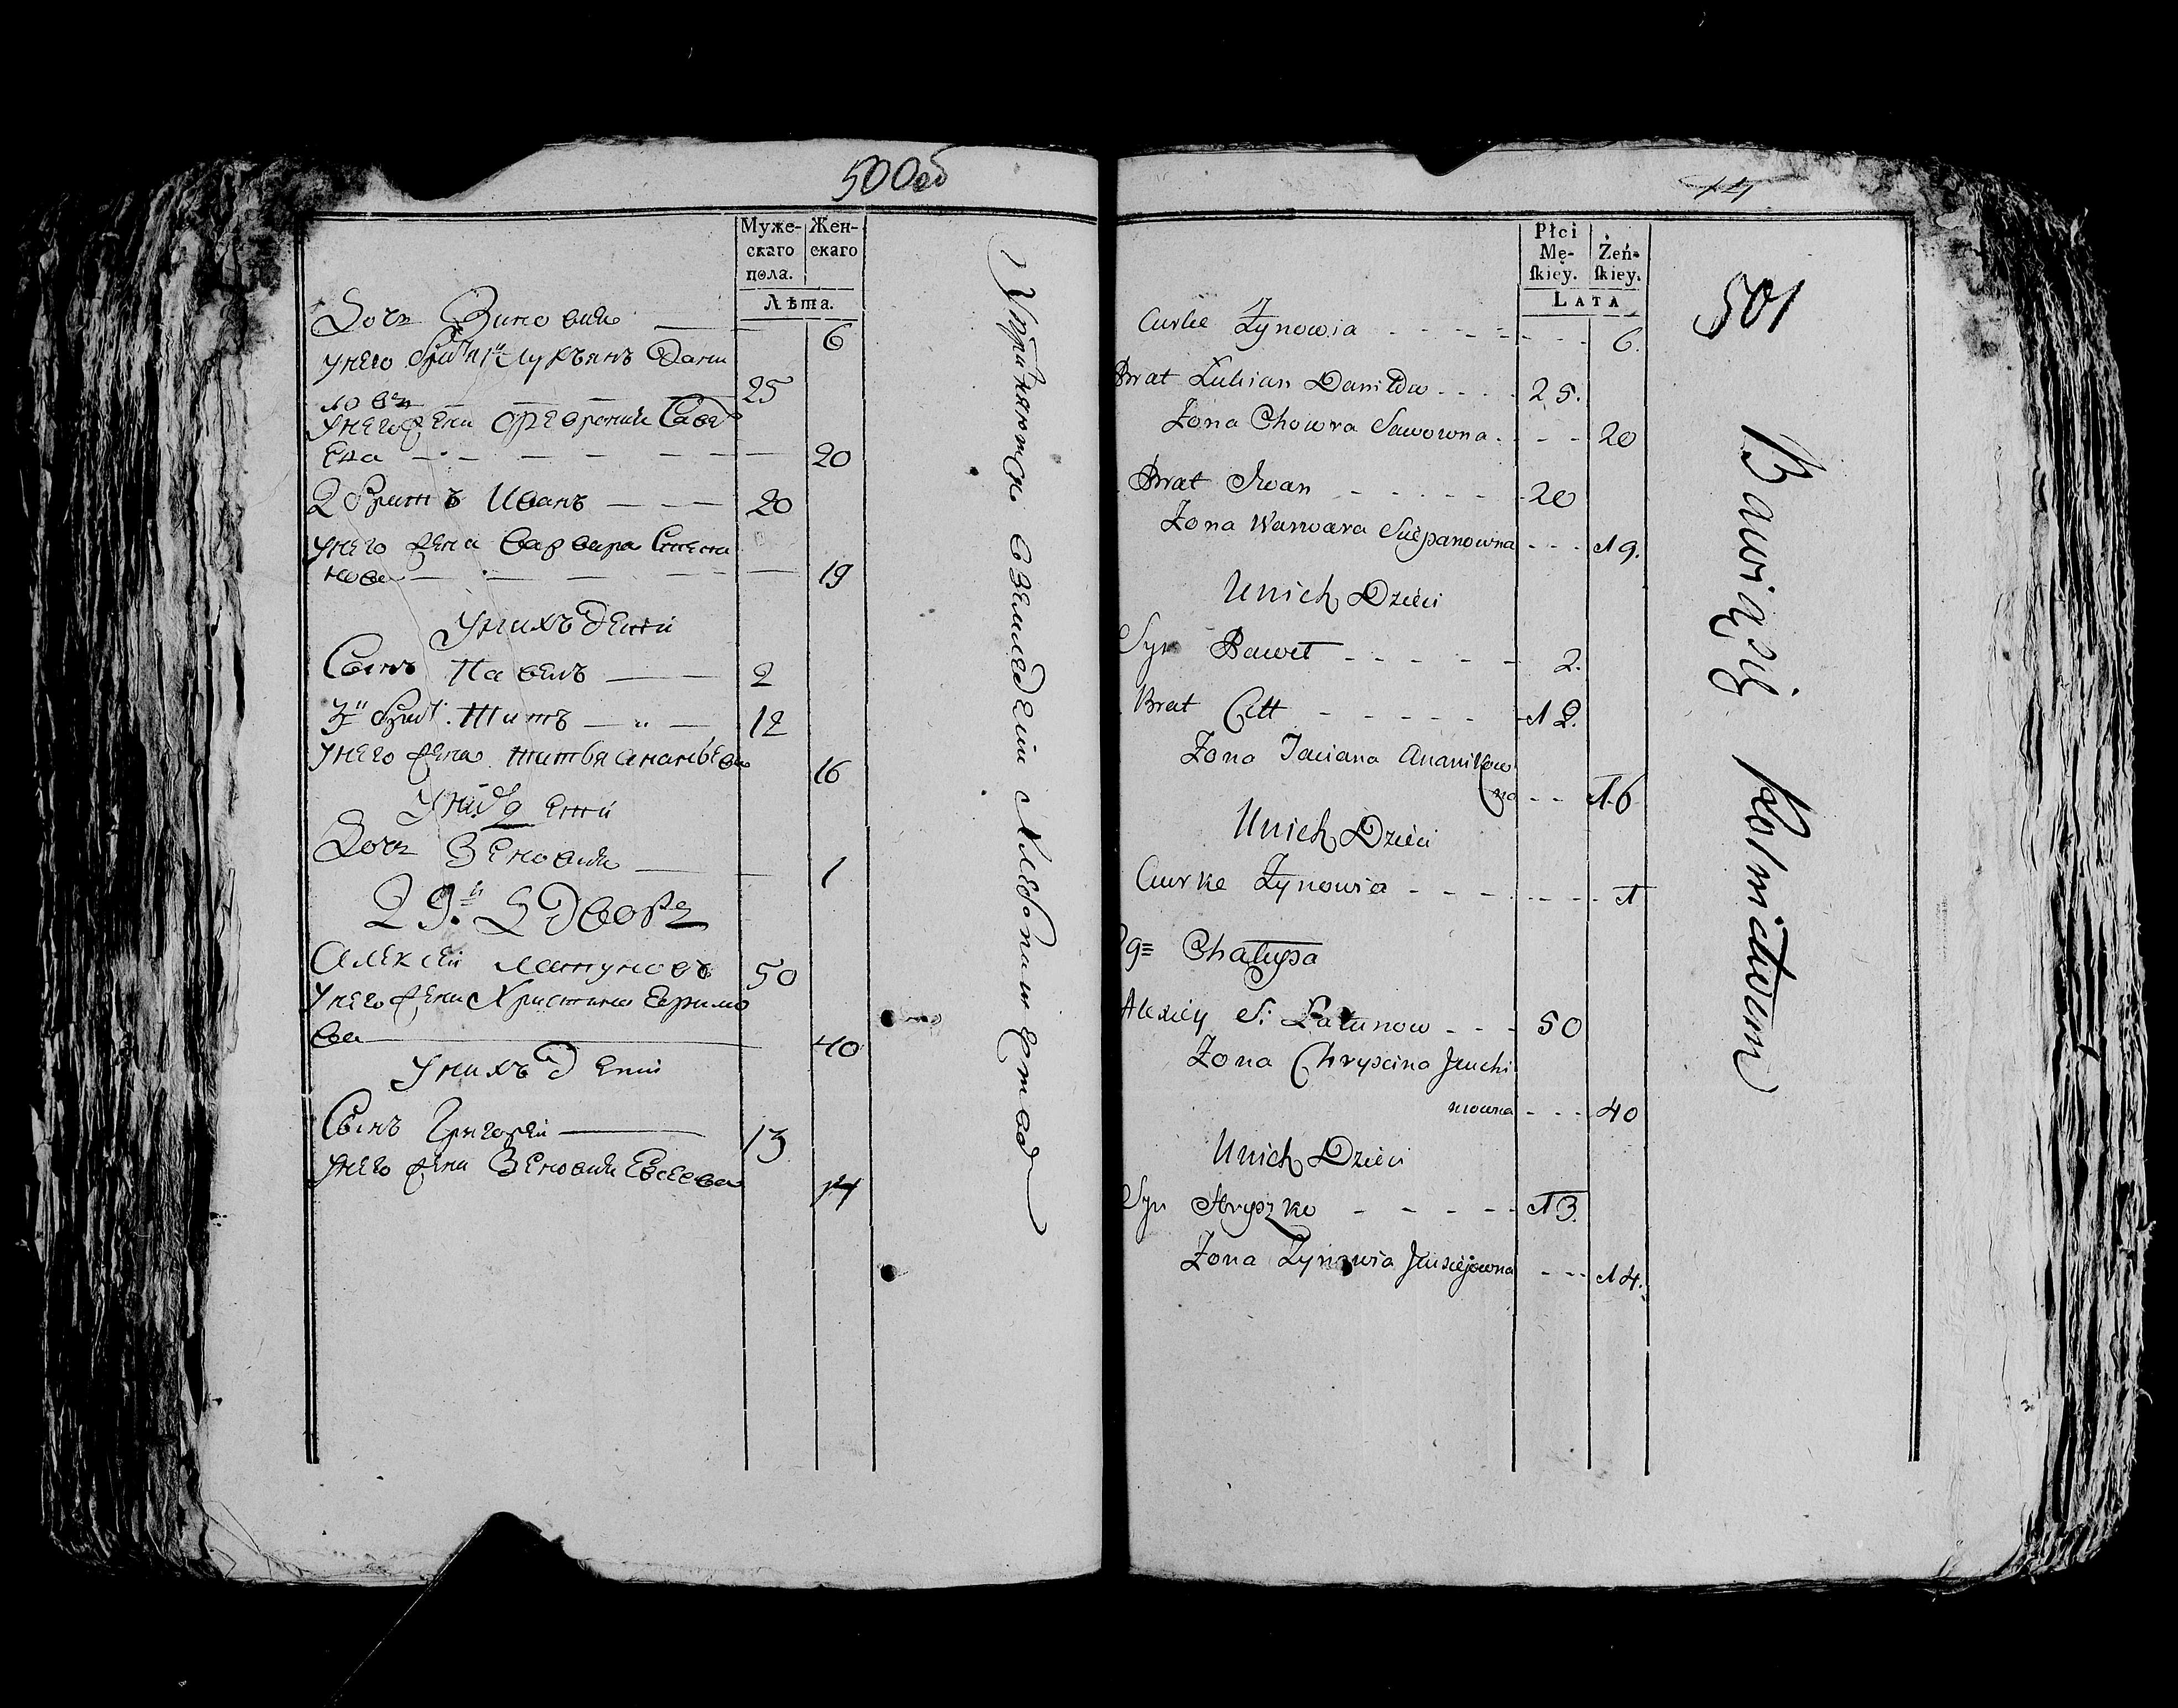 500об
Муже-
скаго
пола.
Жен-
скаго
Лѣта.
Дочь Зиновия 6
У него братъ 1й Лукьянъ Дани
лова 25
У него жена Феврония Саве
ева 20
2 братъ Иванъ 20
У него жена Варвара Степа
нова 19
У нихъ дети
Сынъ Павелъ 2
3й братъ Титъ 12
У него жена Татьяна Ананьева 16
У них дети
Дочь Зеновия 1
29й Дворъ
Алексей Латуновъ 50
У него жена Христина Ефимо
ва 40
У нихъ дети
Сынъ Григорей 13
У него жена Зеновия Евсеева 14
Упражняются в земледелии и хлебопашестве
14
501
Płci
Mę-
ſkiey.
Żeń-
ſkiey.
LATA
Curke Zynowia 6.
Brat Łukian Daniłow 25.
Zona Chowra Sawowna 20
Brat Iwan 20
Zona Warwara Sciepanowna 19.
Unich Dzieci
Syn Paweł 2.
Brat Citt 12.
Zona Taciana Ananikow
na 16
Unich Dzieci
Curke Zynowia 1
29= Chałupa
Alexiey Łatunow 50
Zona Chryscina Jeuchi
mowna 40
Unich Dzieci
Syn Hryszko 13.
Zona Zynowia Jeusiejowna 14.
Bawiąsię Rolnictwem